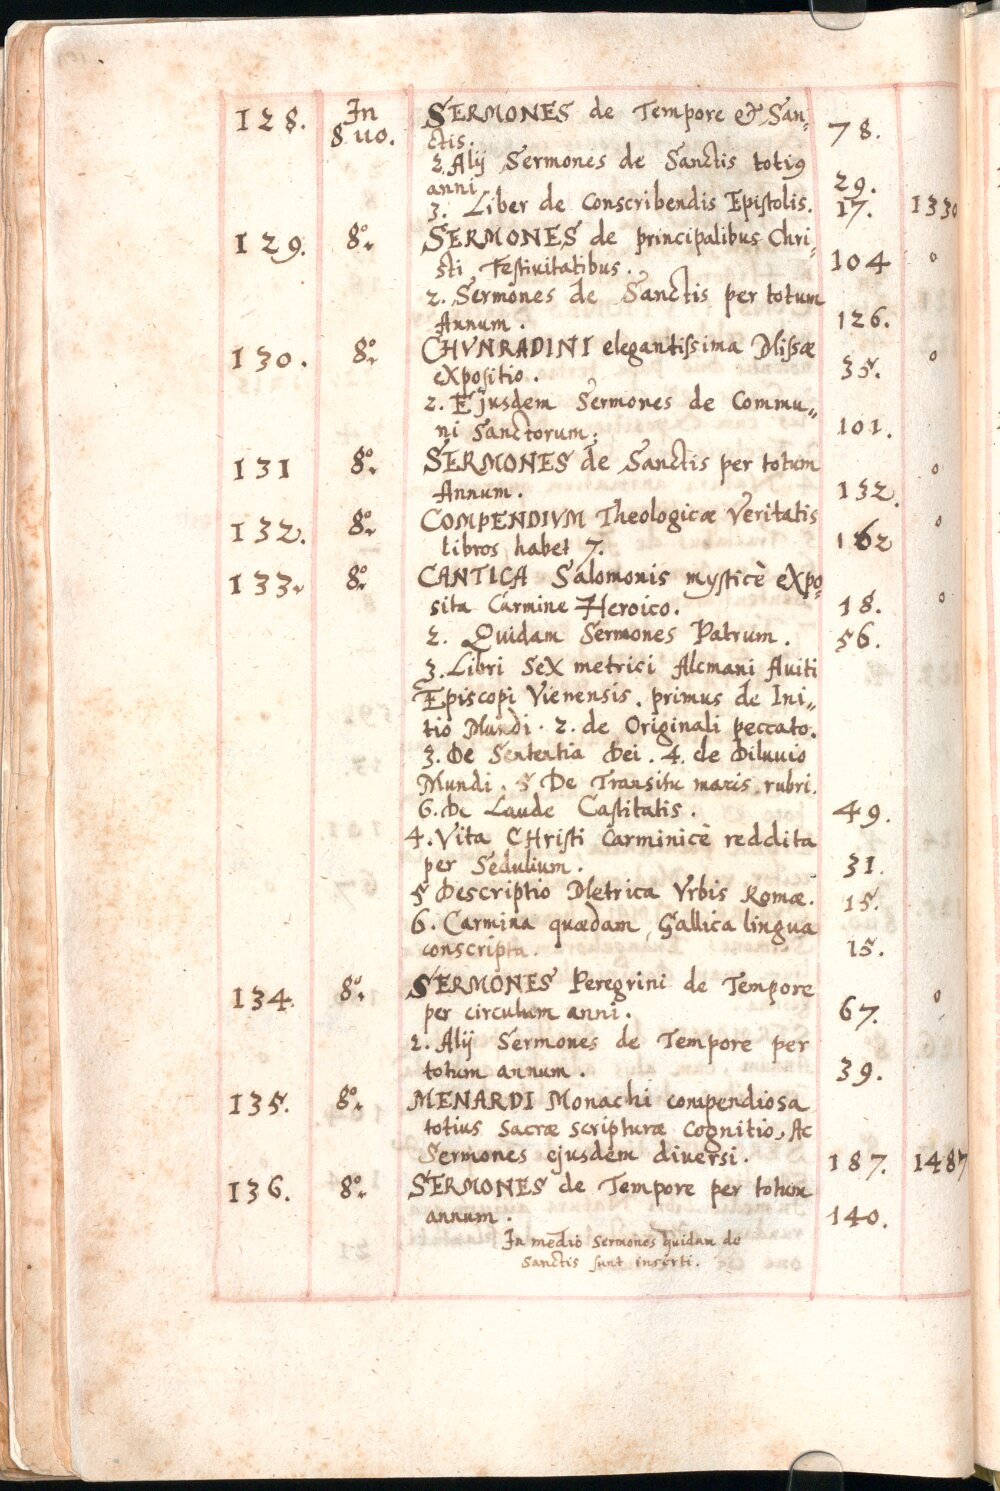 128. In SERMONES de Tempore & San-
8uo. ctis. 78.
2. Alij Sermones de Sanctis totiꝰ
anni 29.
3. Liber de Conscribendis Epistolis. 17. 1330
129. 8º. SERMONES de principalibus Chri-
sti Festiuitatibus. 104 º
2. Sermones de Sanctis per totum
Annum. 126.
130. 8º. CHVNRADINI elegantissima Missæ º
expositio. 35.
2. Ejusdem Sermones de Commu„
ni Sanctorum. 101.
131 8º. SERMONES de Sanctis per totum º
Annum. 132.
132. 8º. COMPENDIVM Theologicæ Veritatis º
libros habet 7. 162
133. 8º. CANTICA Salomonis mysticè expo-
sita Carmine Heroico. 18. º
2. Quidam Sermones Patrum. 56.
3. Libri Sex metrici Alcmani Auiti
Episcopi Vienensis. primus de Ini„
tio Mundi. 2. de Originali peccato.
3. De Sententia Dei. 4. de Diluuio
Mundi. 5 De Transitu maris rubri.
6. De Laude Castitatis. 49.
4. Vita CHristi Carminicè reddita
per Sedulium. 31.
5 Descriptio Metrica Vrbis Romæ. 15.
6. Carmina quædam Gallica lingua
conscripta. 15.
134. 8º. SERMONES Peregrini de Tempore º
per circulum anni. 67.
2. Alij Sermones de Tempore per
totum annum. 39.
135. 8º. MENARDI Monachi compendiosa
totius sacræ scripturæ Cognitio, Ac
Sermones ejusdem diversi. 187. 1487
136. 8º. SERMONES de Tempore per totum
annum. 140.
In medio Sermones quidam de
Sanctis sunt inserti.